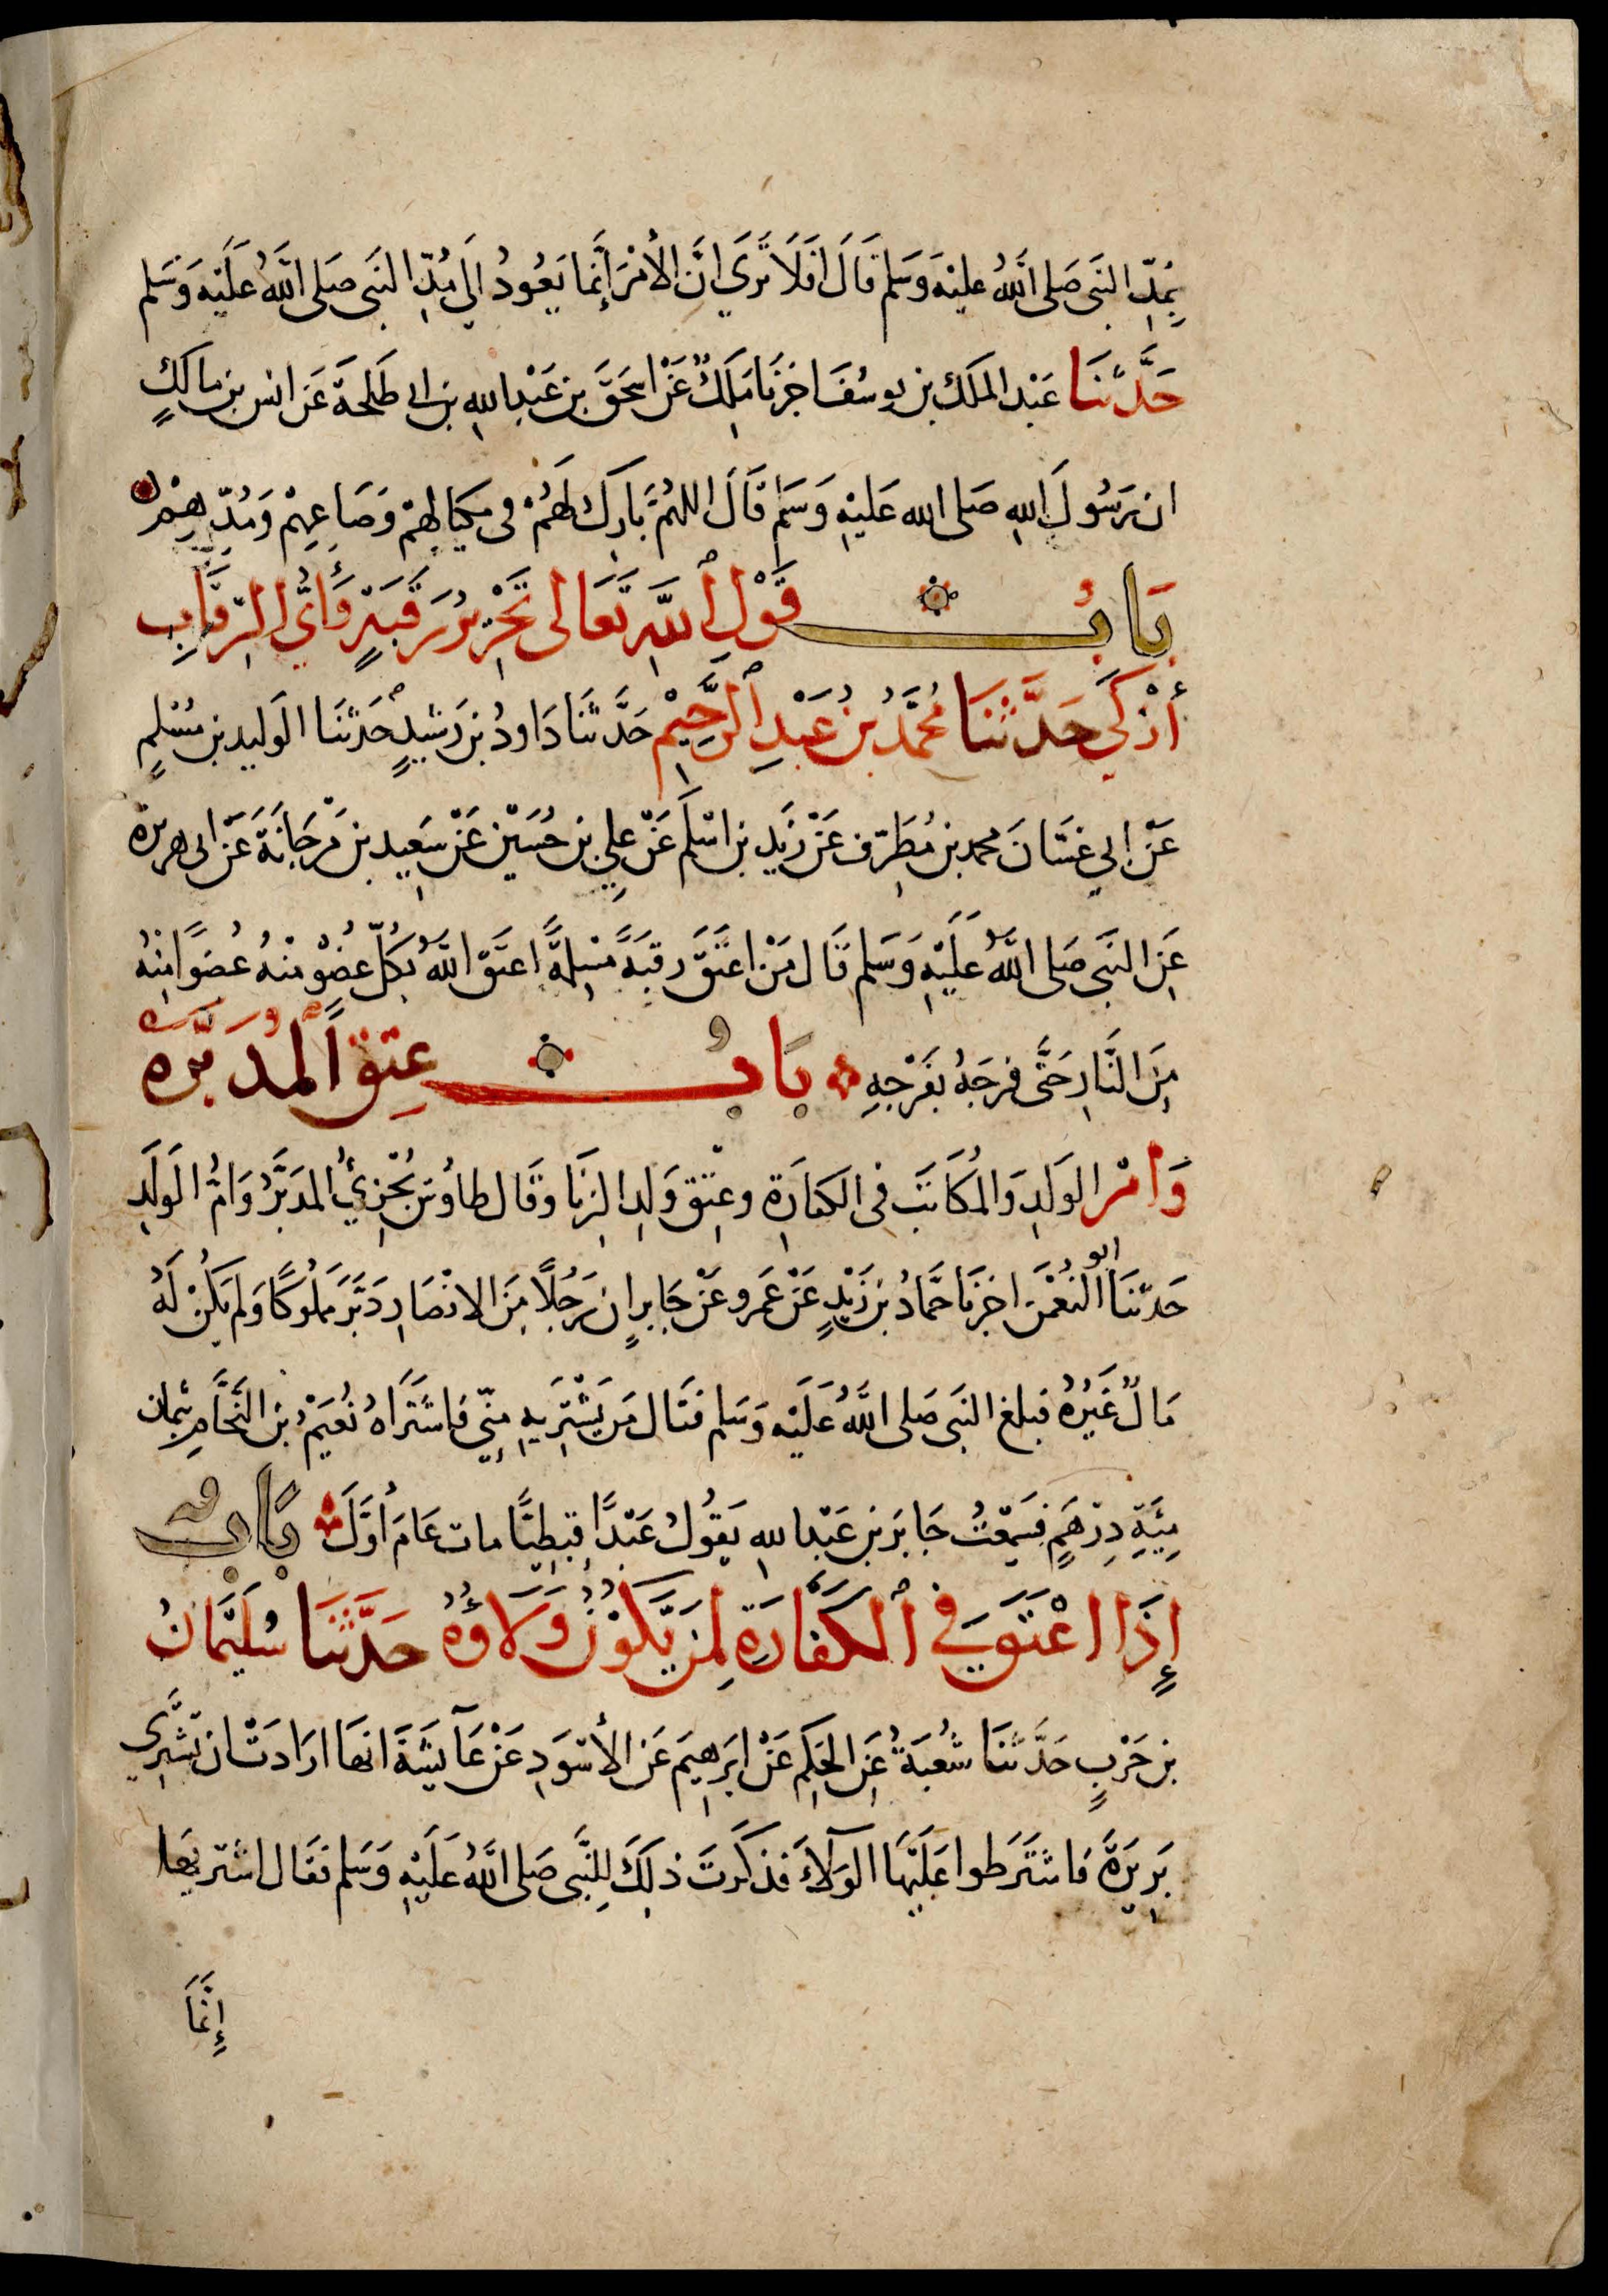 بِمُدِّ النَّبِى صَلى اللَّهُ عليْهِ وَسَلم قَالَ افَلَا تَرَي انَّ الأمْرَ إِنَّمَا يَعُودُ الَى مُدِّ النَبِى صَلى اللَّهُ عَلَيْهِ وَسَلم
حَدَّثَنَا عَبْد الملَك بن يوسُفَ اخبَرَنَا مَلِكٌ عَنْ اسحَقَ بنِ عَبْدِ اللهِ بن ابى طَلحَةَ عَن انس بن مالكٍ
ان رَسُولَ اللهِ صَلى الله عَليْهِ وَسَلم قَالَ اللهُمَّ بَارِك لهُمْ فى مِكيَالِهِمْ وَصَاعِهِمْ وَمُدِّهِمْ
بَابُ قَوْلِ ٱللَّهِ تَعَالى تَحْرِيرُ رَقَبَةٍ وَأَيُّ الرِّقَابِ
أزْكَى حَدَّثَنَا مُحَمَّدُ بْنُ عَبْدِ ٱلرَّحِيْمِ حَدَّثَنَا دَاودُ بن رَشيدٍ حَدثَنَا الوَليد بن مُسْلِمٍ
عَنْ ابي غسَّانَ محمد بن مُطَرِّف عَنْ زَيدِ بن اسْلَمَ عَنْ علِي بن حُسَيْن عَنْ سَعِيد بن مَرْجَانَةَ عَنْ ابى هريرة
عَنِ النَّبِى صَلى اللَّهُ عَلَيْهِ وَسَلم قَال مَنْ اعتَقَ رَقبَةً مُسْلِمَةً اعتَقَ اللَّهُ بكُلِّ عضُوٍ منْهُ عُضوًا مِنْهُ
مِنَ النَّارِ حَتَّى فرجَهُ بفَرْجهِ بَابُ عِتقِ ٱلمُدَبَّرِ
وَأمِّ الوَلدِ وَالمُكَاتَبَ فى الكفارَةِ وعِتِق وَلدِ الزِنَا وقَال طاوُس يُجْزِيُ المدَبَّرُ وَامُّ الوَلَدِ
حَدثنَا ابو النعْمنِ اخبرنَا حَمَّادُ بن زَيْدٍ عَنْ عَمرو عَنْ جَابرٍ ان رَجُلاً مِنَ الانْصَارِ دَبَّرَ مَملُوكًا وَلم يَكُنْ لهُ
مَالٌ غَيْرُهُ فبلغَ النبَى صَلى اللَّهُ عَلَيْهِ وَسَلم فقَال مَن يَشْتِرَيهِ مِنِّي فَاشتَرَاهُ نُعَيْمُ بن النَّحَّامِ بثمان
مِئَةِ دِرْهَمٍ فسَمِعْتُ جَابَر بن عَبْد اللهِ يَقُولُ عَبْدًا قِبطِيًّا مات عَامَ أوَّلَ بَابُ
إِذَا اعْتَقَ فِي ٱلكَفَّارَةِ لِمَنْ يَّكُوْنُ وَلَاؤُهُ حَدَّثَنَا سُلَيْمَانُ
بن حَرْبٍ حَدَّثَنَا شُعْبَةُ عَنِ الحَكم عَنْ ابَرهِيمَ عَن الأسْوَدِ عَنْ عَآيشَةَ انهَا ارَادَتْ ان تَشْتَرِي
بَرِيْرَةَ فَاشتَرَطوا عَلَيْهَا الوَلاَءَ فذكَرَتَ ذلِكَ لِلنَّبِى صَلى اللَّهُ عَلَيْهِ وَسَلم فقَال اشتَريهَا
إِنَّمَا